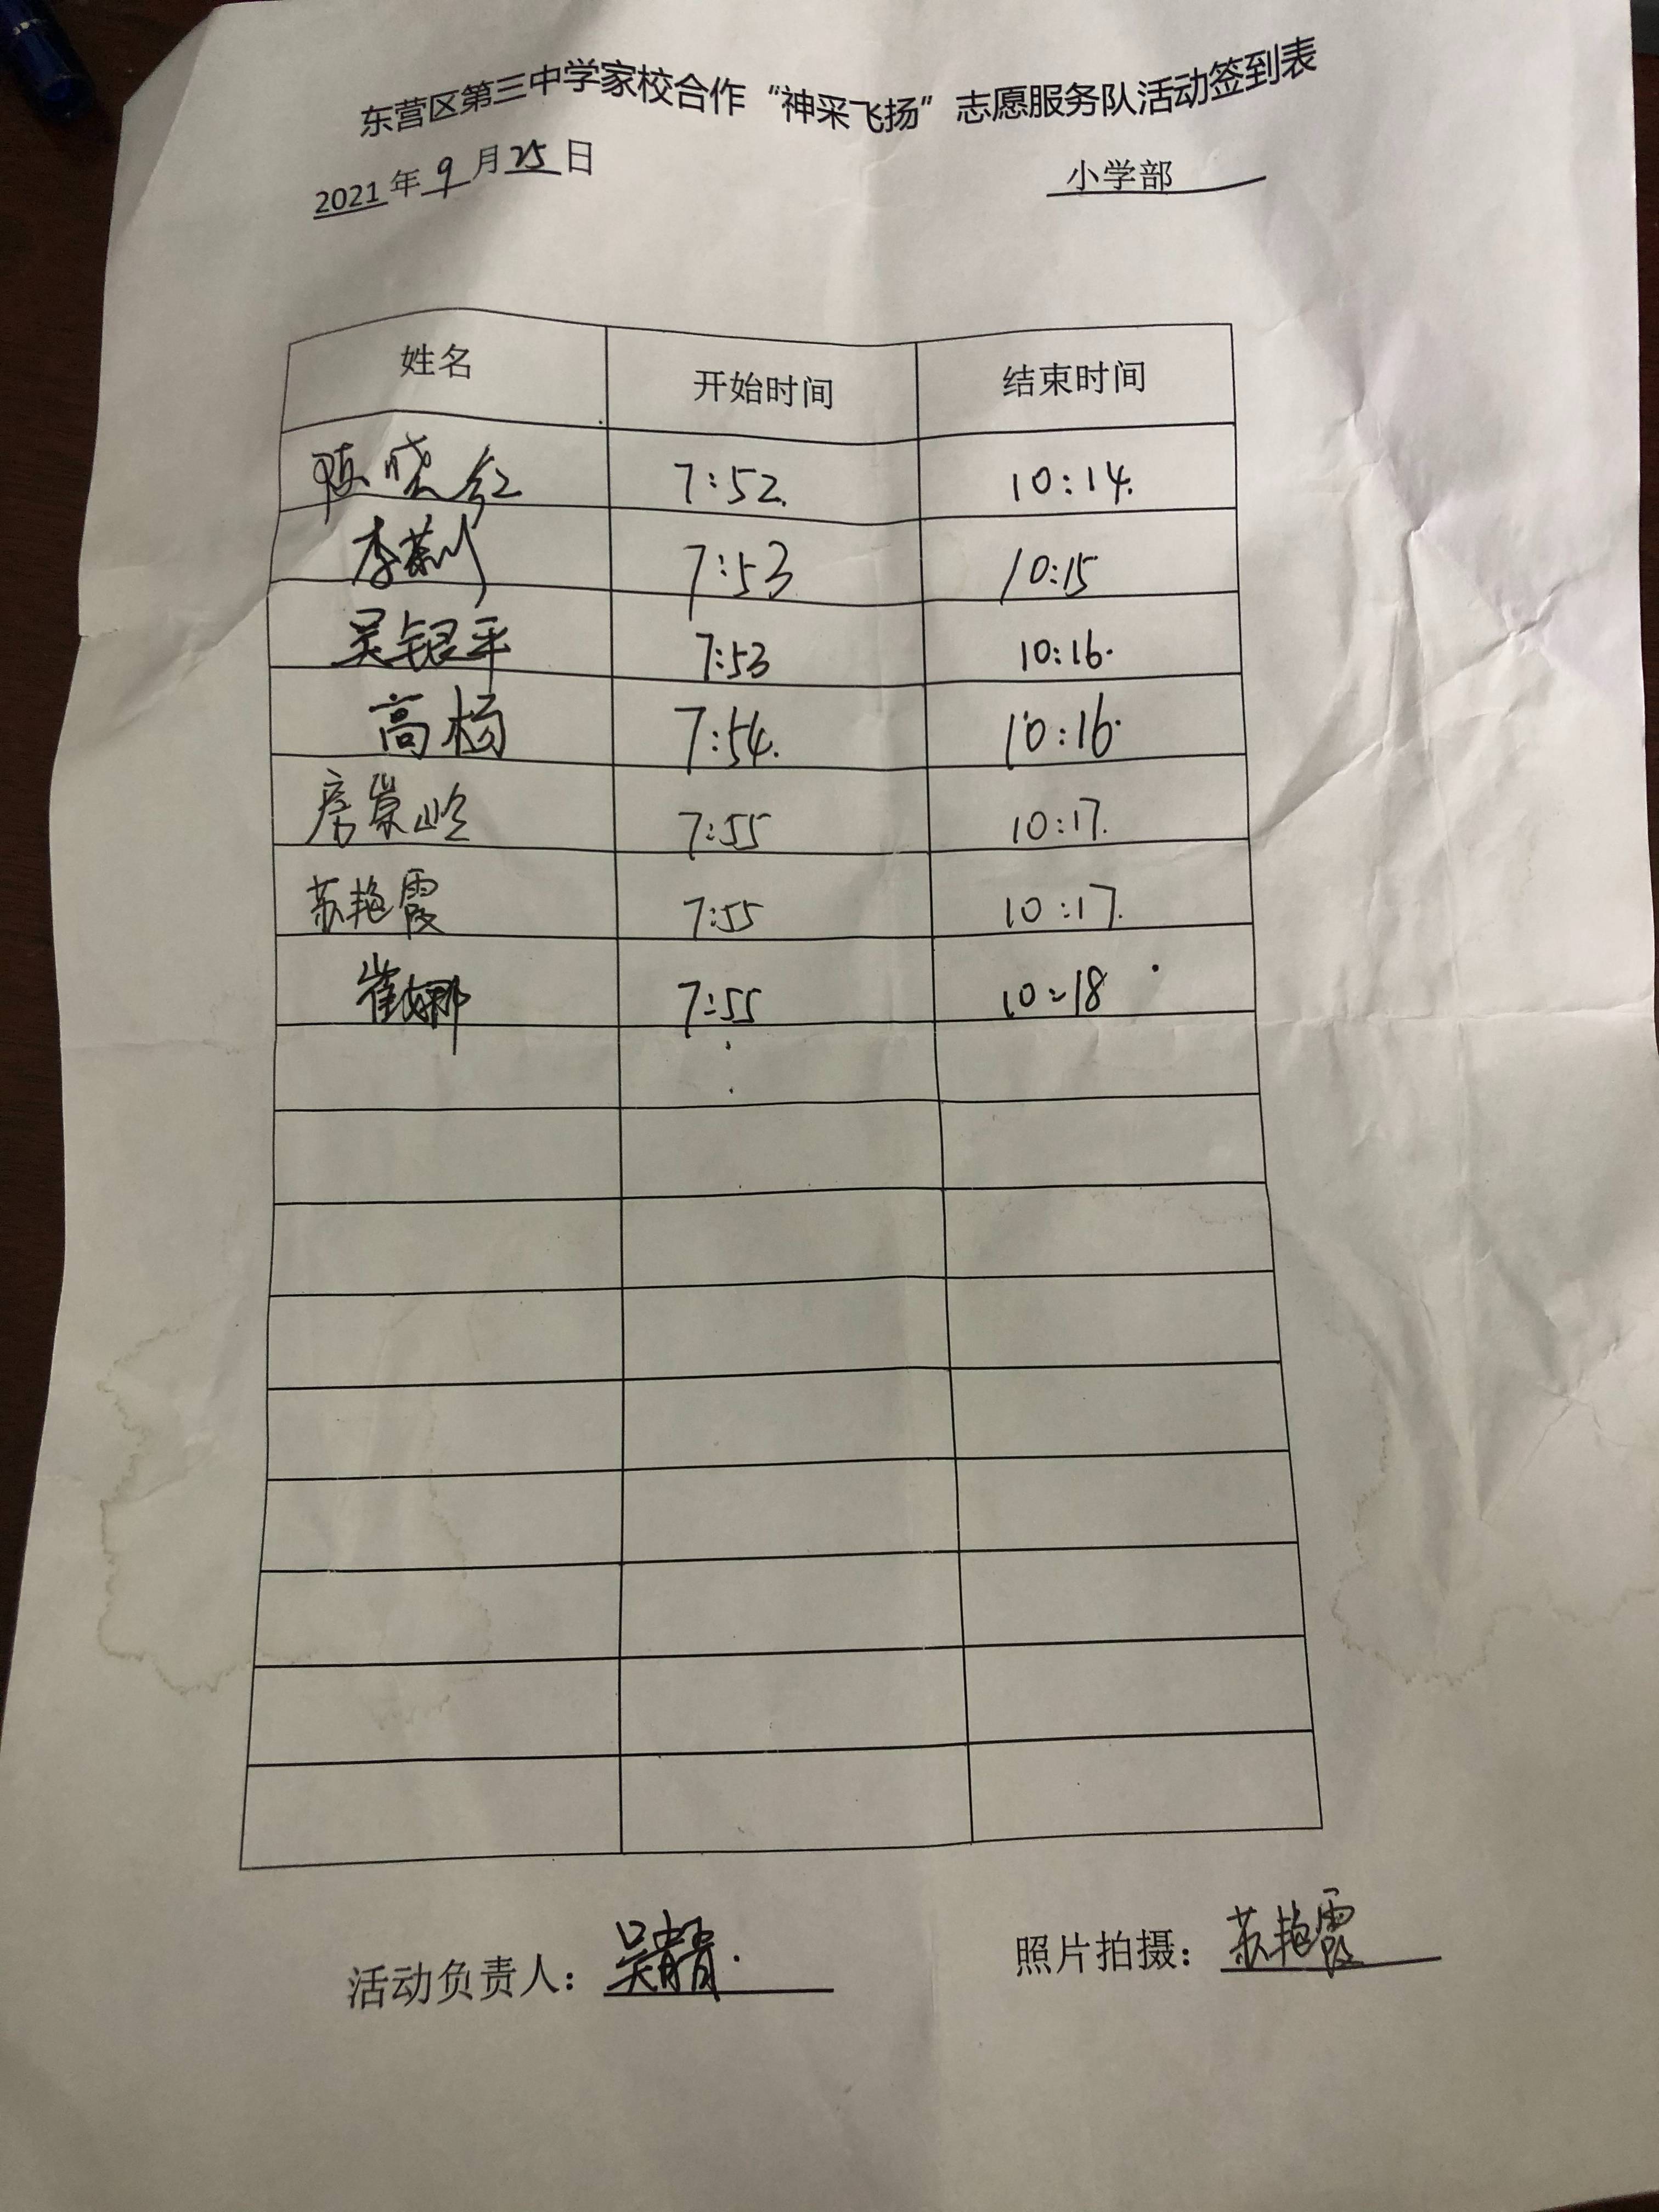 东营区第三中学家校合作“神采飞扬”志愿服务队活动签到表
2021年9月25日 小学部
姓名 开始时间 结束时间
陈晓红 7:52. 10:14.
李 7:53 10:15
吴银平 7:53 10:16.
高杨 7:54. 10:16.
房崇岭 7:55 10:17.
苏艳霞 7:55 10:17.
崔娜 7:55 10:18
活动负责人：吴青青. 照片拍摄：苏艳霞